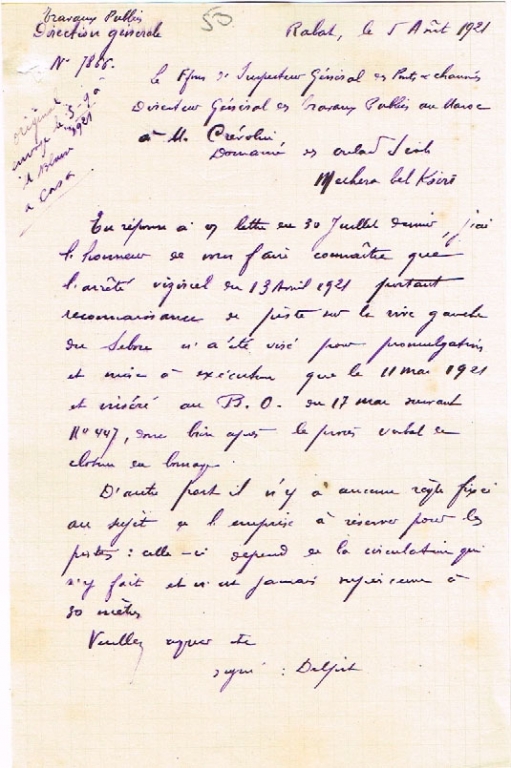 Travaux Publics
50
Rabat, le 5 Août 1921
Direction générale
N° 7866.
original
envoyé le 3-9
à Casa
Le Inspecteur Général des Ponts & chaussées
Directeur Général des Travaux Publics au Maroc
à M. Crévolin
Domaine des oulad
Mechera bel Ksiri
En réponse à v/ lettre du 30 Juillet dernier, j'ai
l'honneur de vous faire connaître que
l'arrêté viziriel du 13 Avril 1921 portant
reconnaissance de piste sur la rive gauche
du Sebou n'a été visé pour promulgation
et mise à exécution que le 11 mai 1921
et inséré au B. O. du 17 mai suivant
N° 447, donc bien après le procès verbal de
cloture du bornage.
D'autre part il n'y a aucune règle fixée
au sujet de l'emprise à réserver pour les
pistes : celle-ci dépend de la circulation qui
s'y fait et n'est jamais supérieure à
30 mètres
Veuillez agréer etc
signé : Delpit